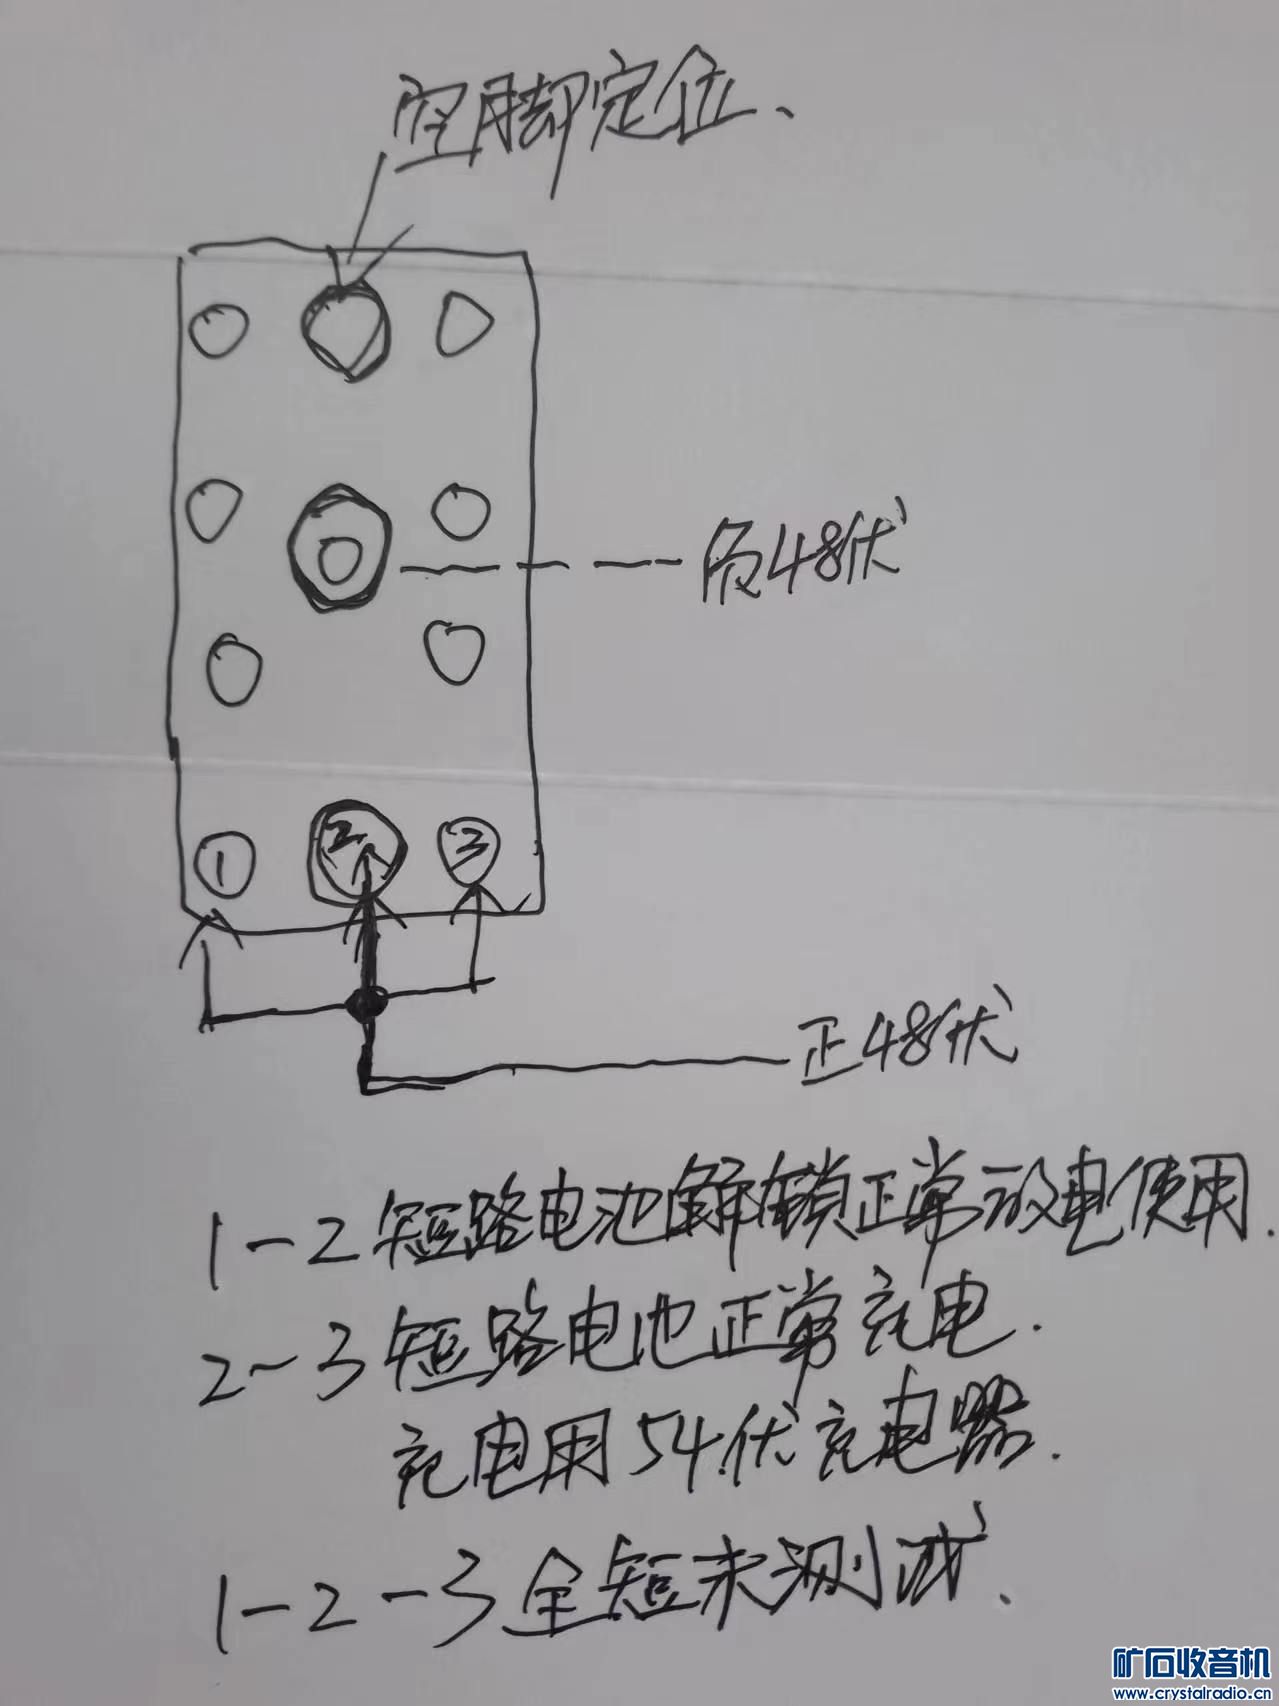 空脚定位、
负48伏
1
2
3
正48伏
1-2短路电池解锁正常放电使用.
2-3短路电池正常充电.
充电用54伏充电器.
1-2-3全短未测试、
矿石收音机
www.crystalradio.cn